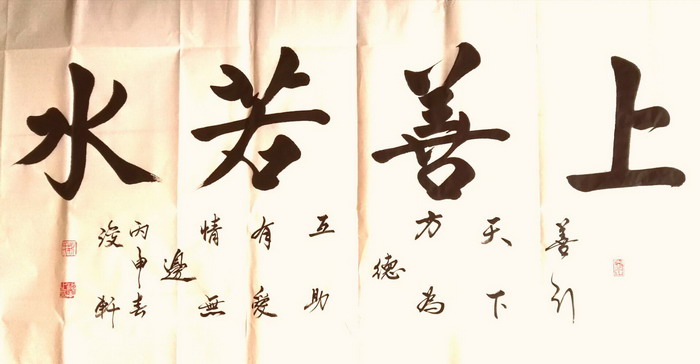 上善若水
善行
天下
方为
德
互助
有愛
情無
邊
丙申春
浚軒